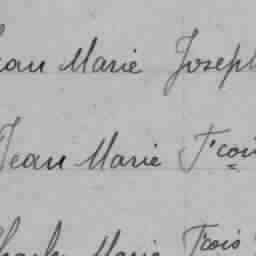 ean Marie Joseph
Jean Marie F'çois
Marie Fçois